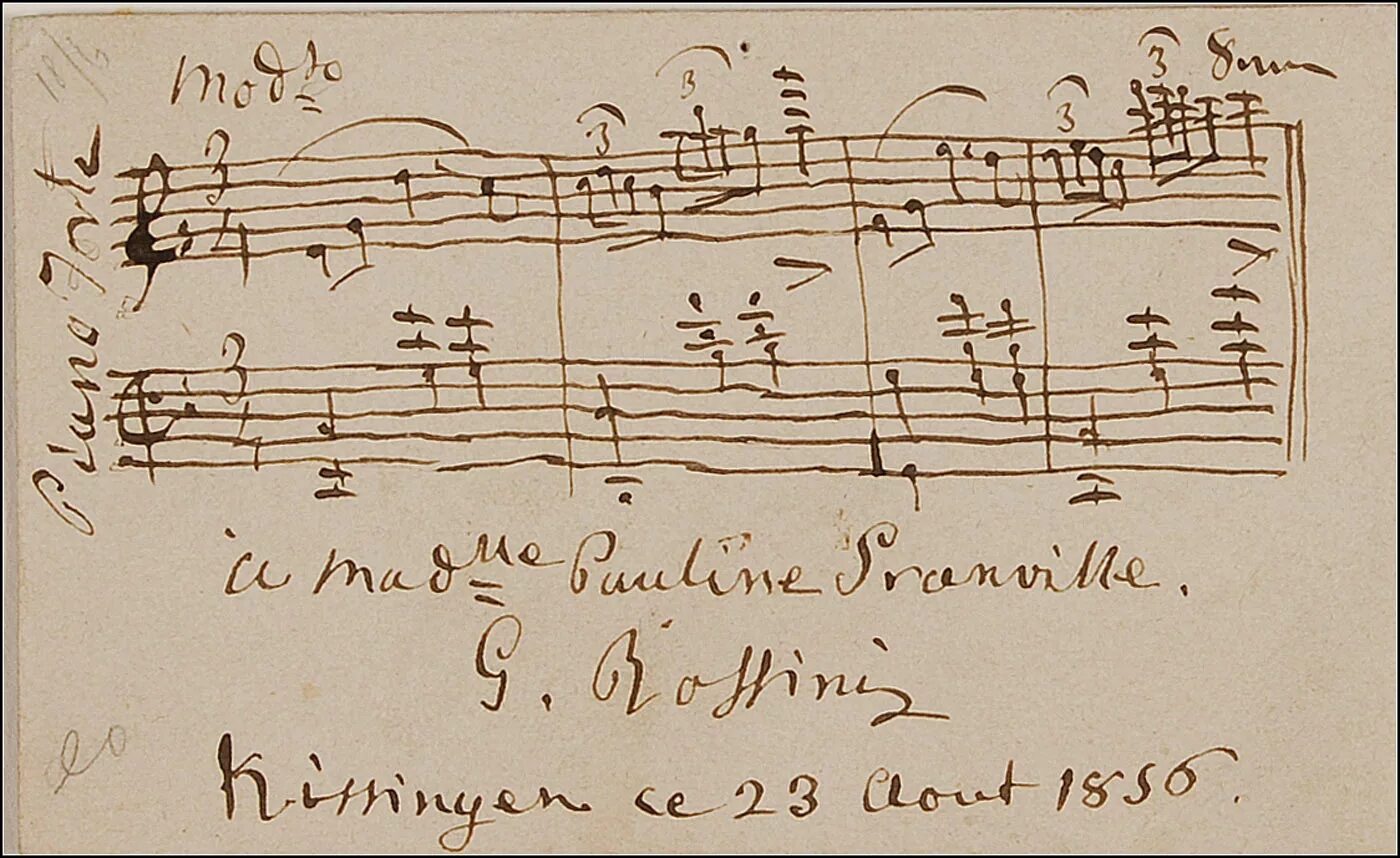 Modto
Piano Forte
3
4
3
3
3
3
3
4
à madlle Pauline Pranville.
G. Rossini
Kissingen ce 23 Aout 1856.